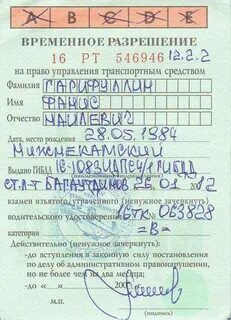 A B C D E
ВРЕМЕННОЕ РАЗРЕШЕНИЕ
16 РТ 546946 12.2.2
на право управления транспортным средством
Фамилия ГАРИФУЛЛИН
Имя ФАНИС
Отчество НАИЛЕВИЧ
Дата, место рождения 28.05.1984
НИЖНЕКАМСКИЙ
Выдано ГИБДД
ст. л-т 26.01 12
взамен изъятого (утраченного) (ненужное зачеркнуть)
водительского удостоверения 16ТК 063828
категории =В=
Действительно (ненужное зачеркнуть):
- до вступления в законную силу постановления
по делу об административном правонарушении,
но не более чем на два месяца;
- до « » 200
М.П.
(подпись)